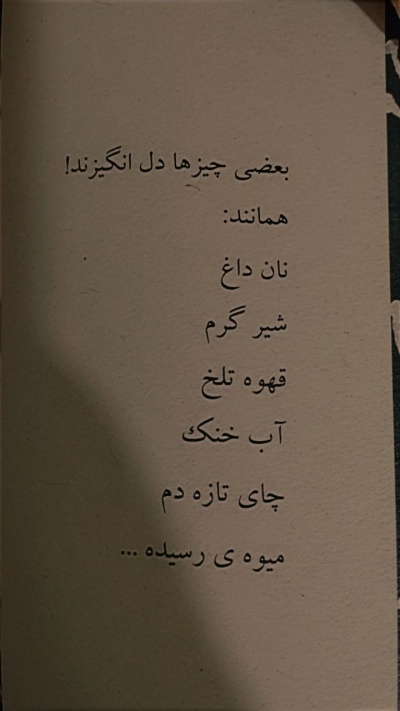 بعضی چیزها دل انگیزند!
همانند:
نان داغ
شیر گرم
قهوه تلخ
آب خنک
چای تازه دم
میوه ی رسیده ...